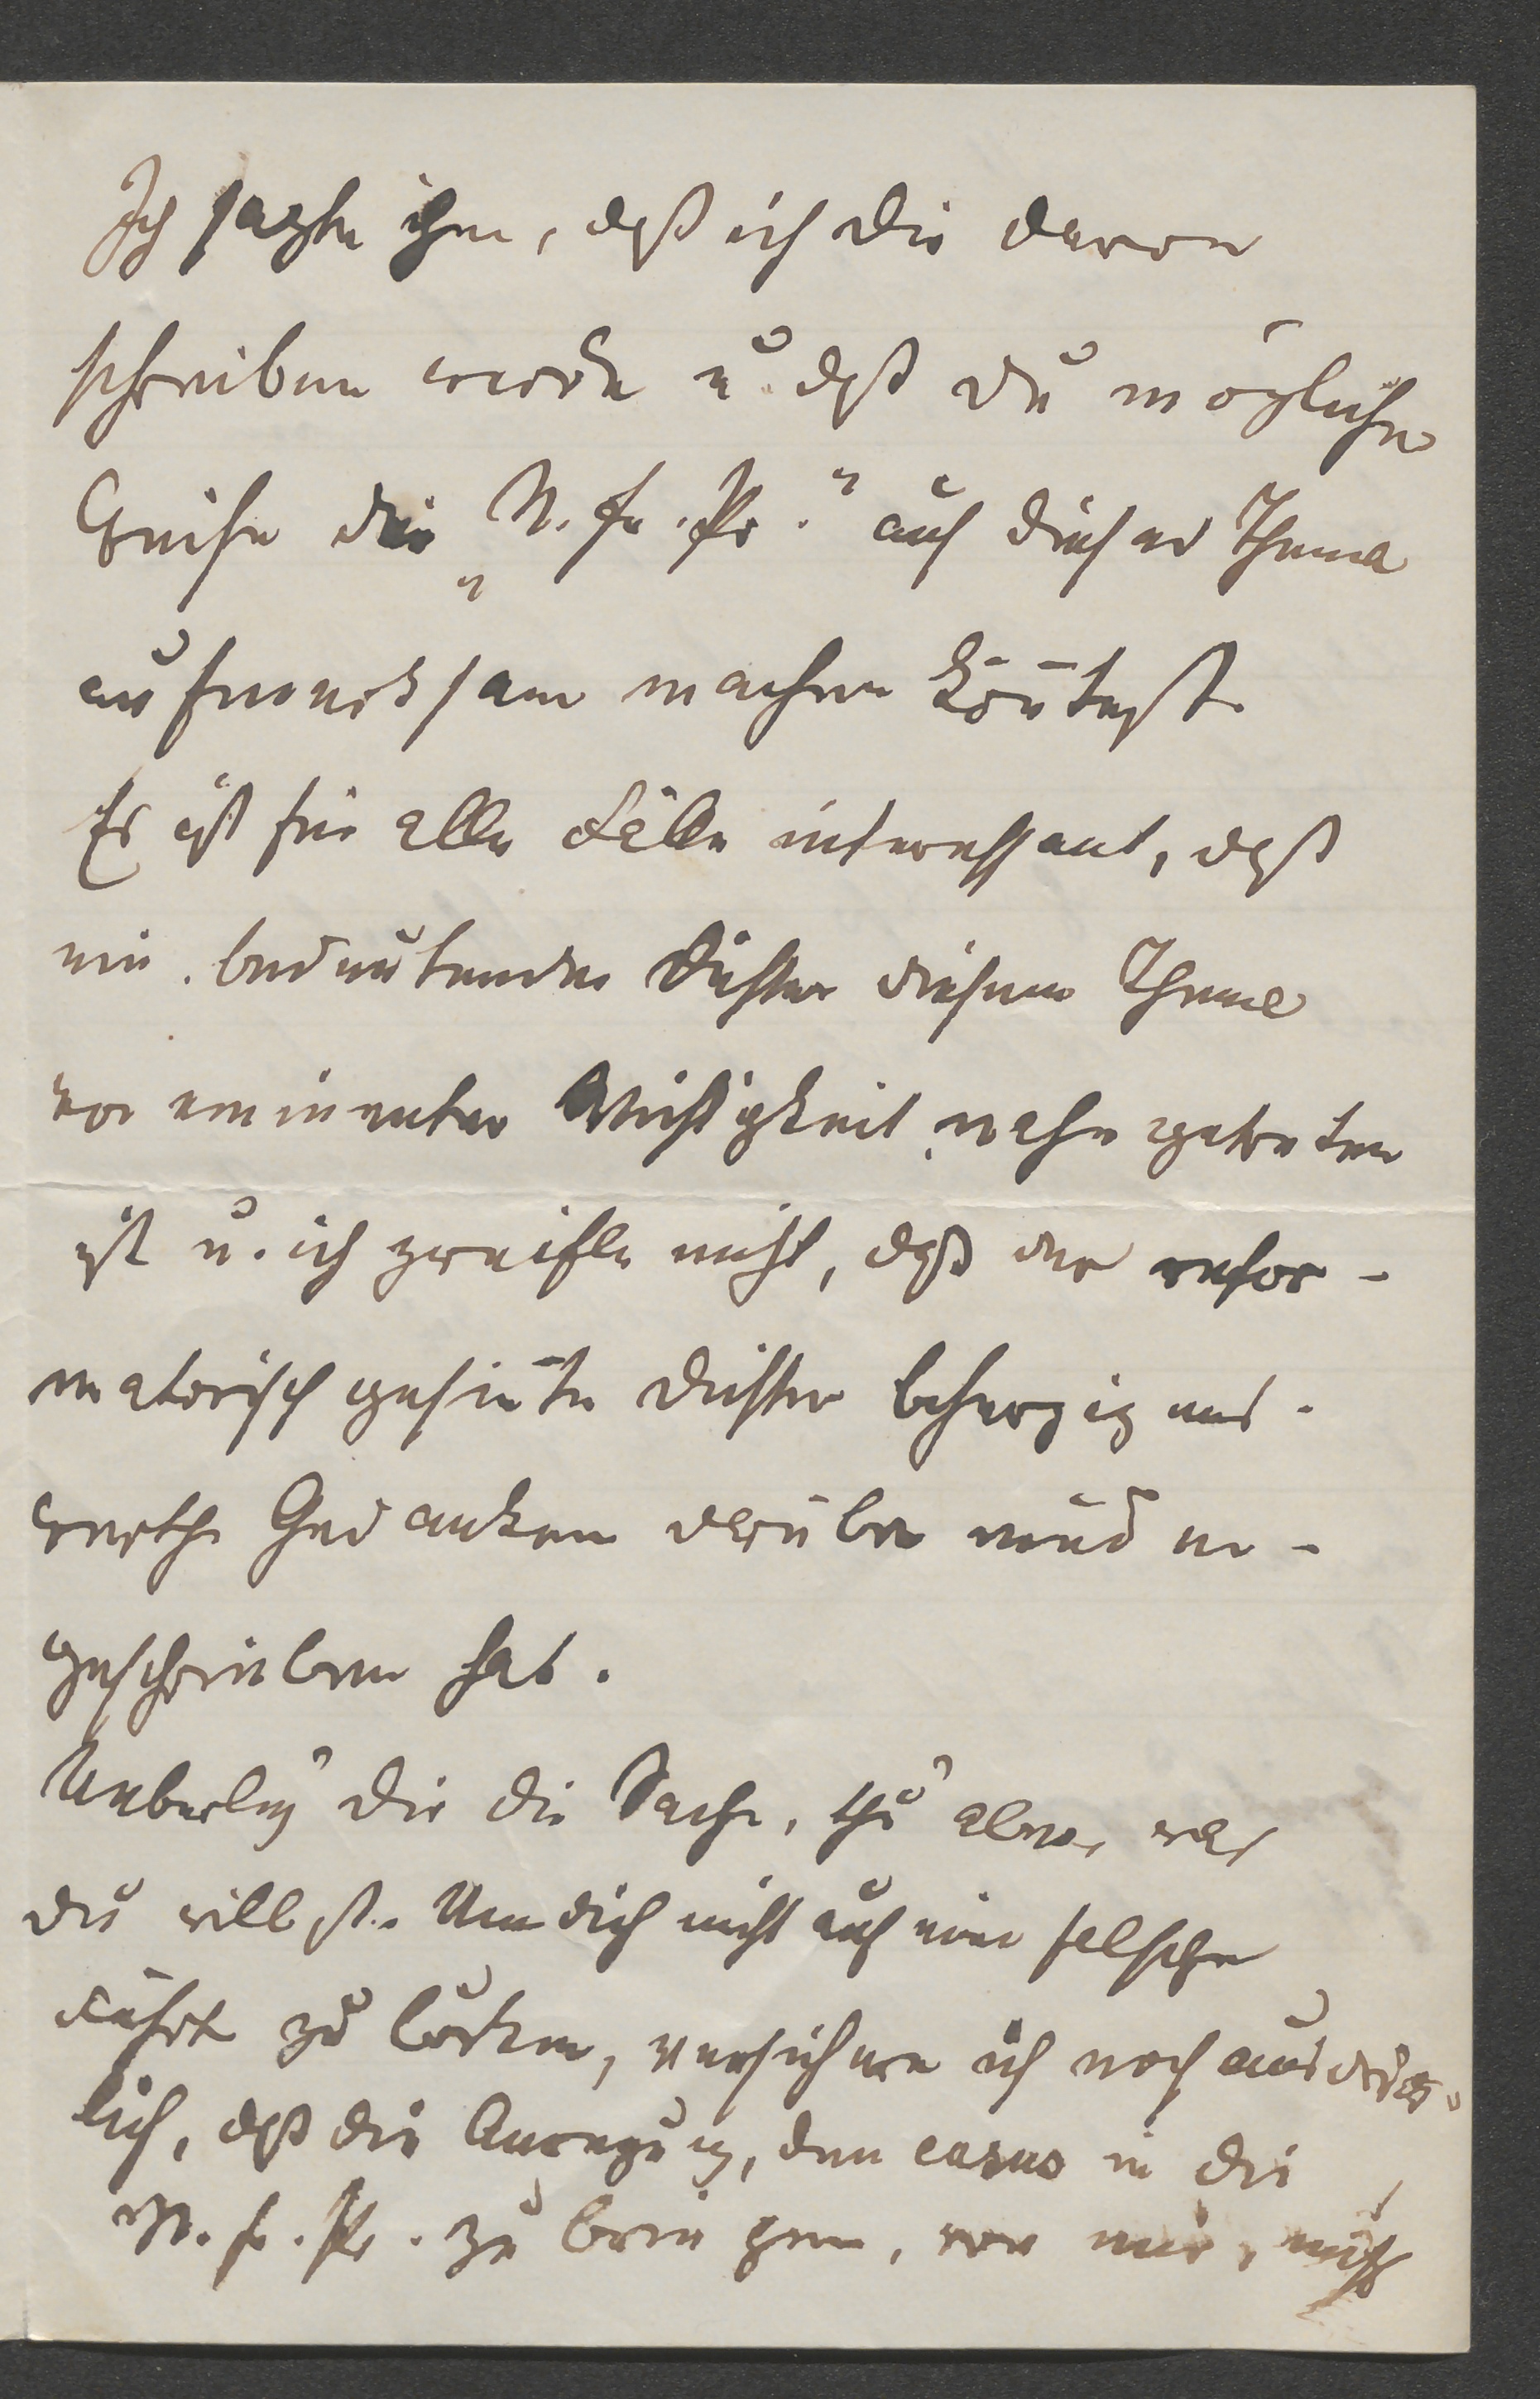 Ich sagte ihm, daß ich dir davon
schreiben werde u. daß du möglicher
Weise die „N. fr. Pr." auf dieses Thema
aufmerksam machen kön̄test.
Es ist für alle Fälle interessant, daß
ein bedeutender Dichter diesem Thema
von eminenter Wichtigkeit nahe getreten
ist u. ich zweifle nicht, daß der refor-
matorisch gesin̄te Dichter beherzigens-
werthe Gedanken darüber nieder-
geschrieben hat.
Ueberleg' dir die Sache, thu' aber, was
du willst. Um dich nicht auf eine falsche
Fährte zu locken, versichere ich noch ausdrück-
lich, daß die Anregung, den casus in die
N. fr. Pr. zu bringen, von mir, nicht